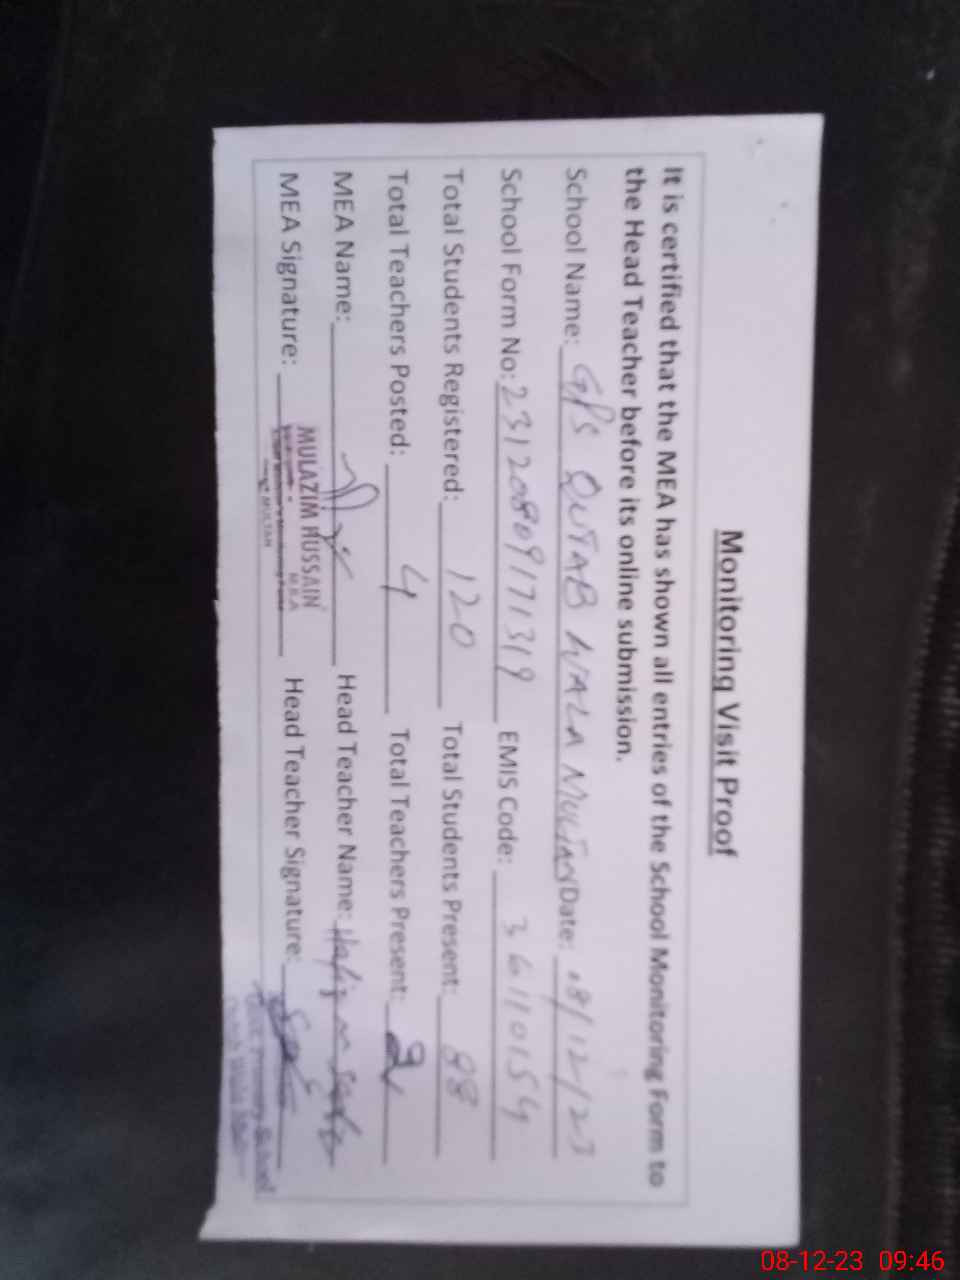 Monitoring Visit Proof
It is certified that the MEA has shown all entries of the School Monitoring Form to
the Head Teacher before its online submission.
School Name: GPS QUTAB WALA MULTAN Date: 08/12/23
School Form No: 2312080917 1319 EMIS Code: 36110154
Total Students Registered: 120 Total Students Present: 88
Total Teachers Posted: 4 Total Teachers Present: 2
MEA Name: Head Teacher Name: Hafiz
MEA Signature: MULAZIM HUSSAIN Head Teacher Signature:
M.E.A
MULTAN
08-12-23 09:46